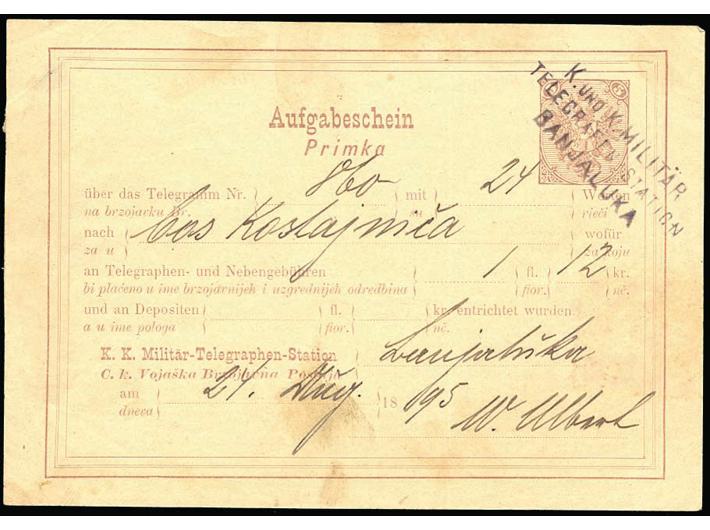 K. UND K. MILITÄR
TELEGRAFEN-STATION
BANJALUKA
Aufgabeschein
Primka
über das Telegramm Nr. 860 mit 24 Worten
na brzojavku Br. rieči
nach Bos Kostajnića wofür
za u za koju
an Telegraphen- und Nebengebühren 1 fl. 12 kr.
bi plaćeno u ime brzojavnijeh i uzgrednijeh odredbina fior. nč.
und an Depositen fl. kr. entrichtet wurden.
a u ime pologa fior. nč.
K. K. Militär-Telegraphen-Station Banjaluka
C. k. Vojaška Brzojavna Postaja
am 24. Aug. 1895
dneva W. Albert